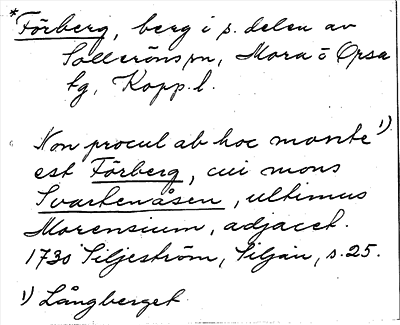 *Förberg, berg i s. delen av
Solleröns sn, Mora o Orsa
tg, Kopp. l.
Non procul ab hoc monte 1)
est Förberg, cui mons
Svartenåsen, ultimus
Morensium, adjacet.
1730 Siljeström, Siljan, s. 25.
1) Långberget